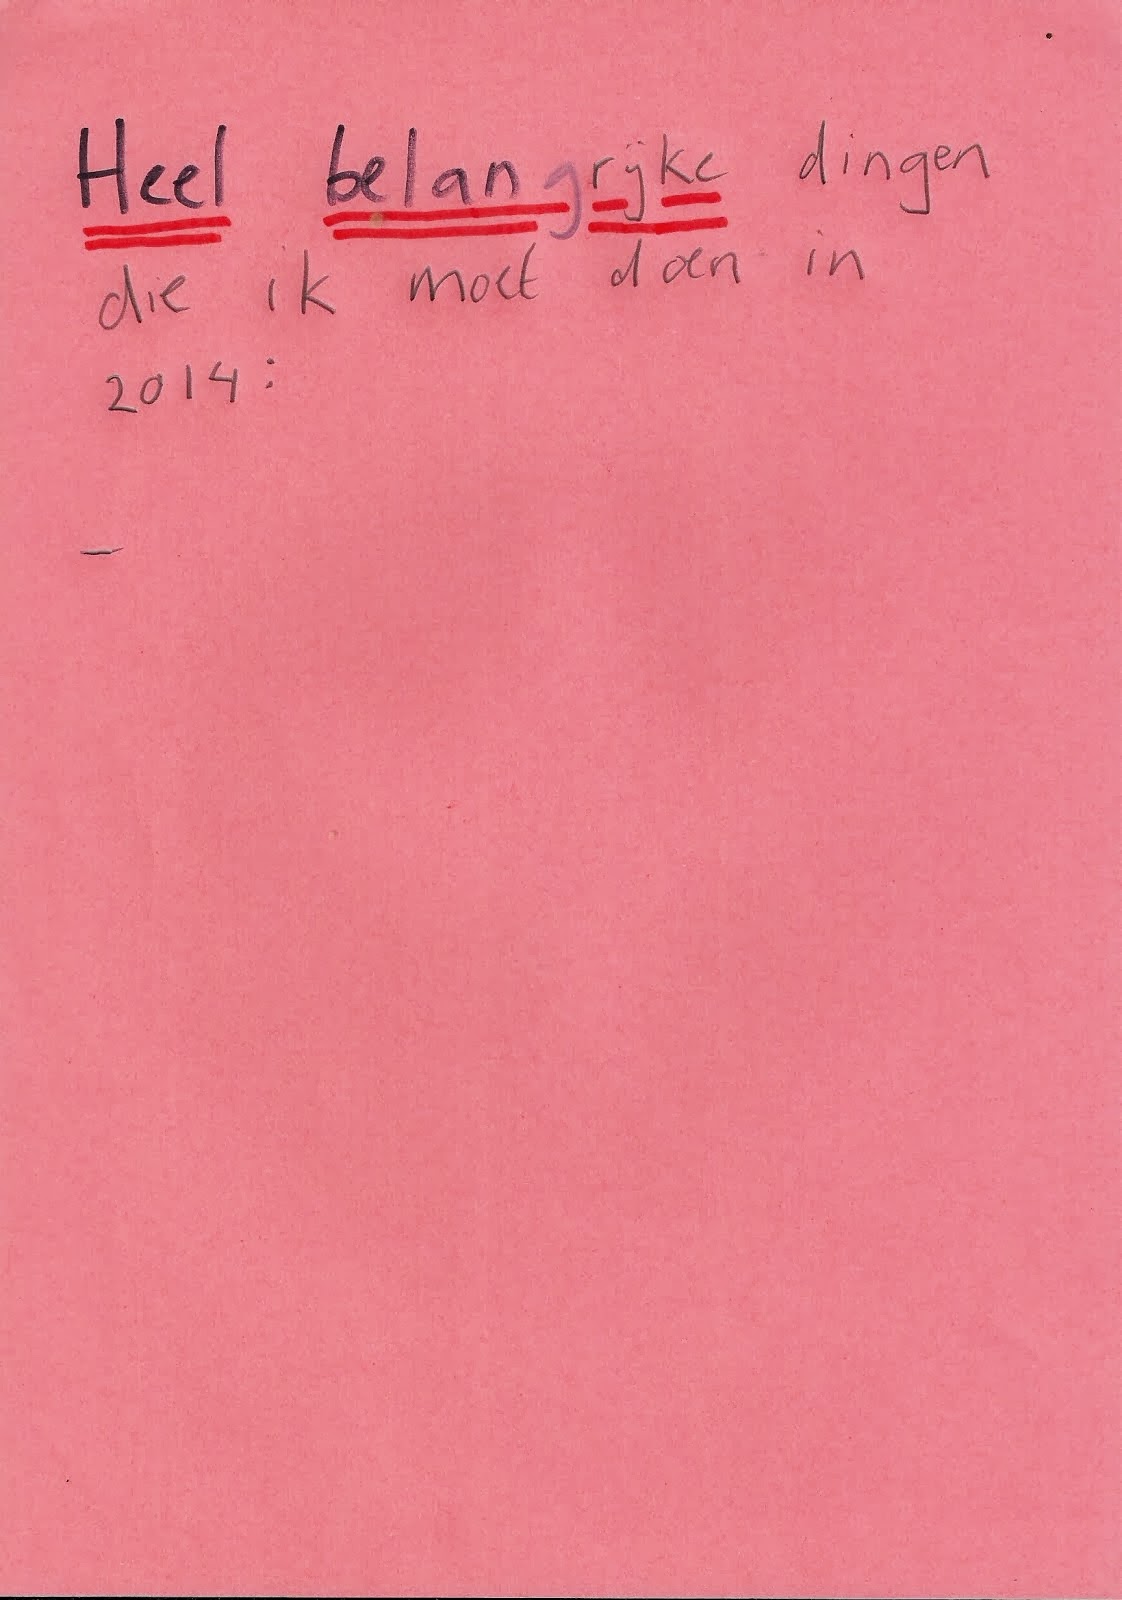 Heel belangrijke dingen
die ik moet doen in
2014:
-